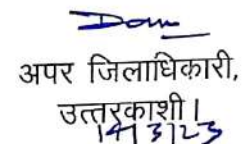 अपर जिलाधिकारी,
उत्तरकाशी।
14/3/23